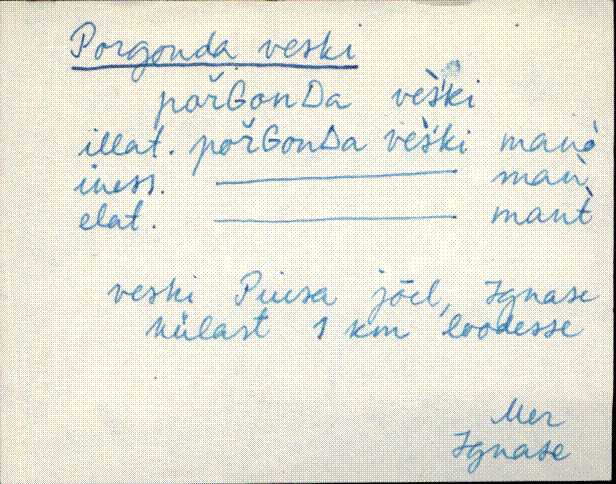 Porgonda veski
pořGonDa vèški
illat. pořGonDa vèški manò
iness. ——— màn
elat. ——— mant̀
veski Piusa jõel, Ignase
külast 1 km loodesse
Mer
Ignase